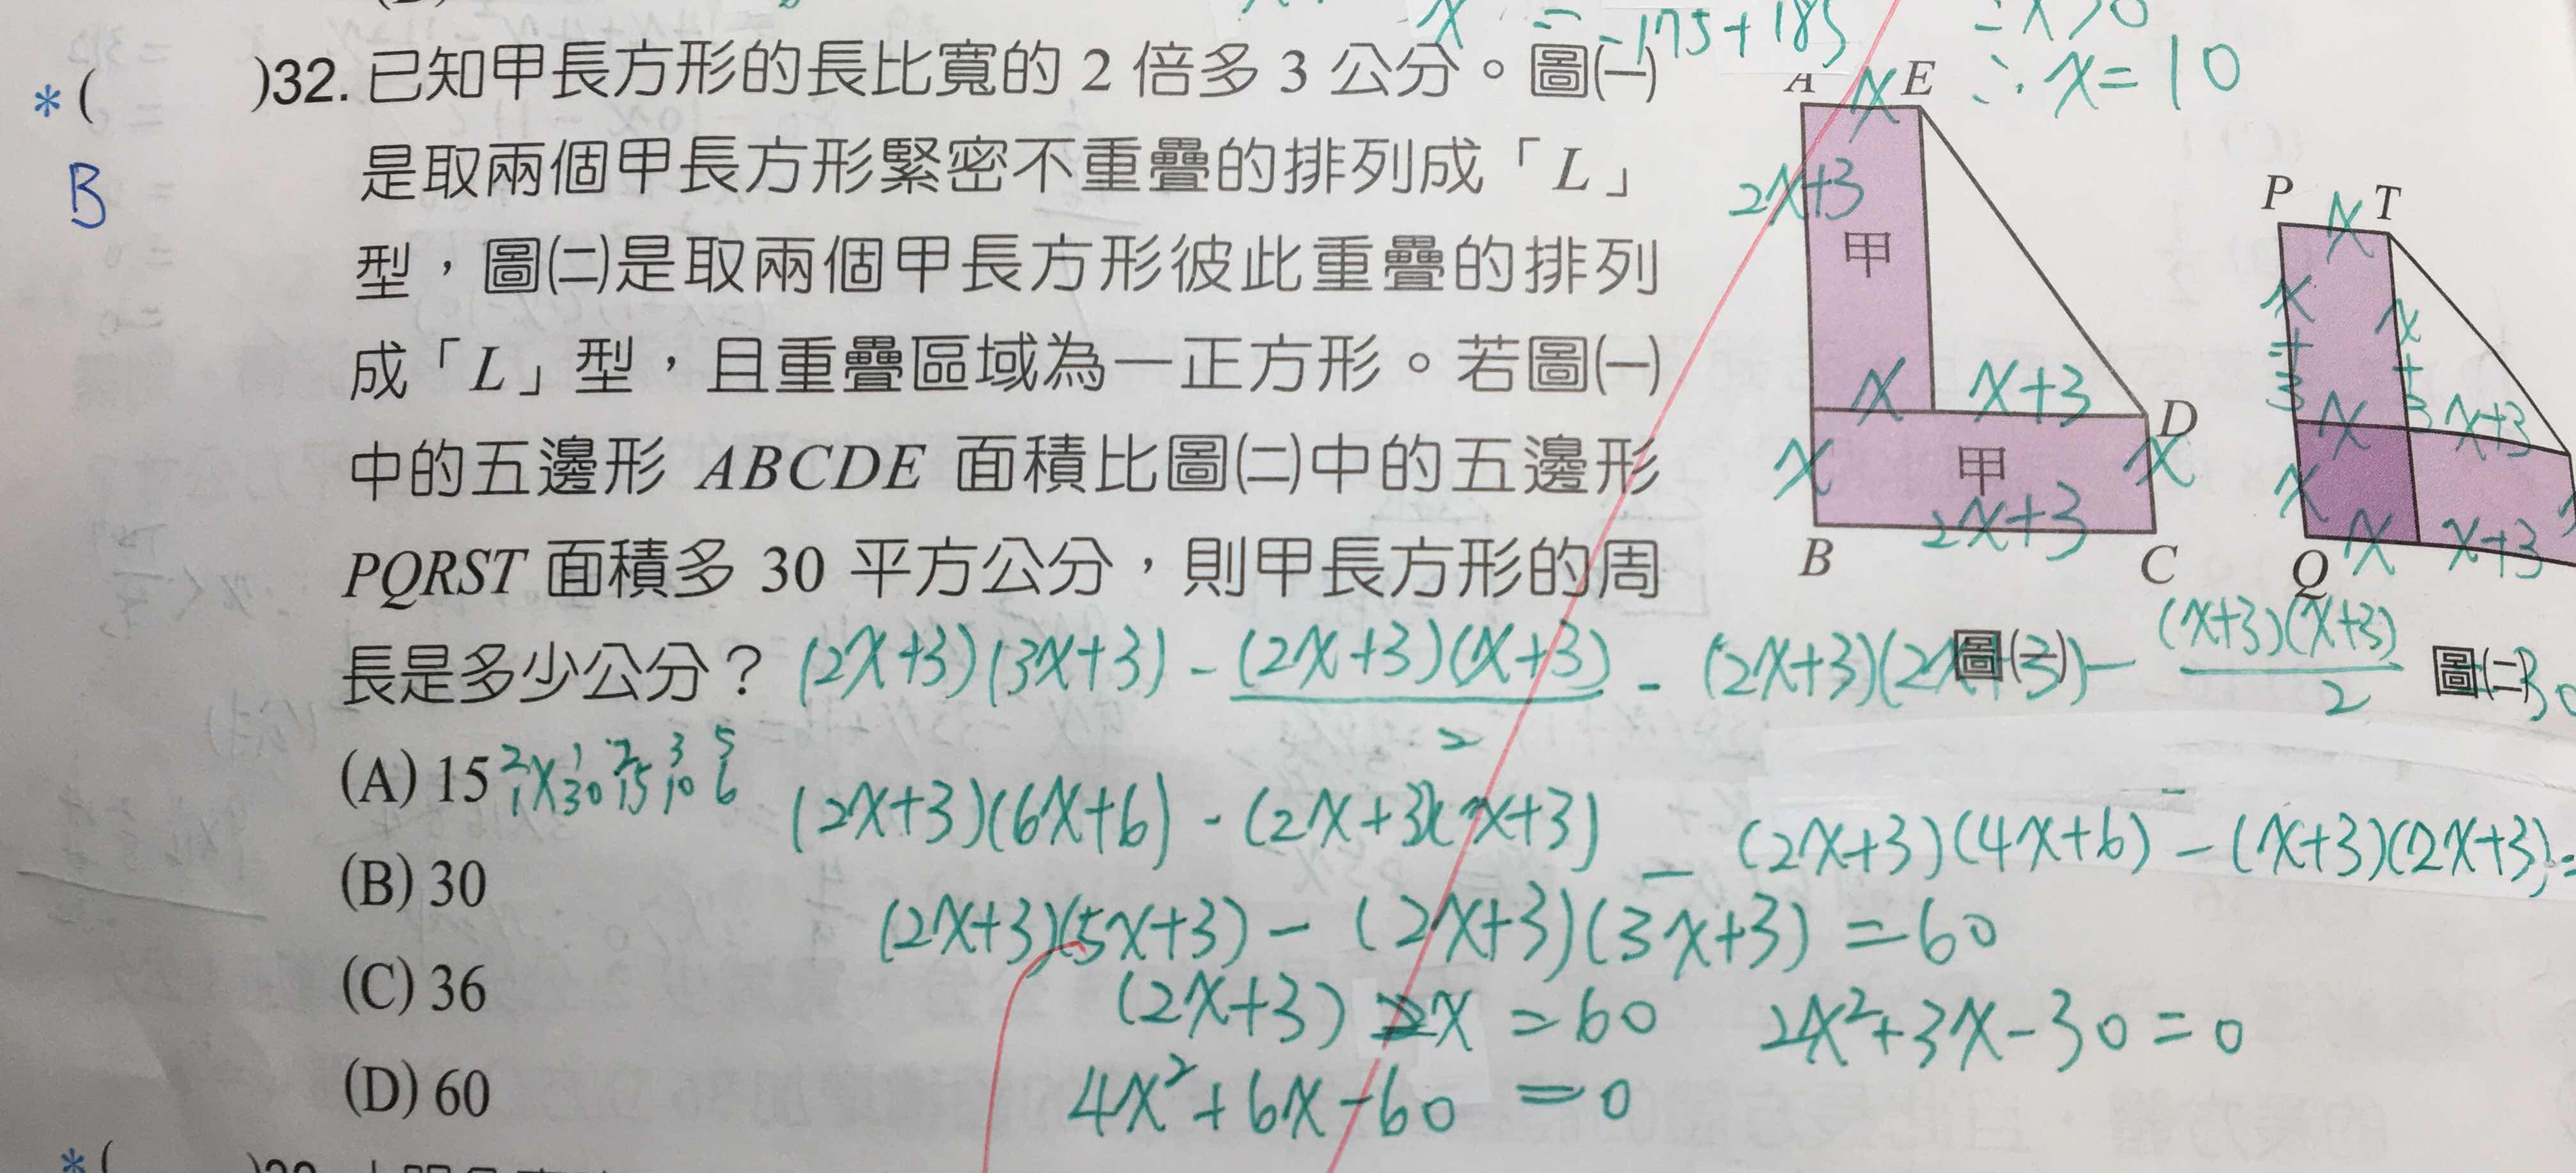 x = -175+185
=x>0
∴x=10
*( )32.已知甲長方形的長比寬的 2 倍多 3 公分。圖㈠
B
是取兩個甲長方形緊密不重疊的排列成「L」
型，圖㈡是取兩個甲長方形彼此重疊的排列
成「L」型，且重疊區域為一正方形。若圖㈠
中的五邊形 ABCDE 面積比圖㈡中的五邊形
PQRST 面積多 30 平方公分，則甲長方形的周
長是多少公分？
(A) 15
(B) 30
(C) 36
(D) 60
A x E
2x+3
甲
x x+3 D
x 甲 x
2x+3
B C
圖㈠
P x T
x+3 x+3
x x+3
x
Q x x+3
圖㈡
(2x+3)(3x+3) - (2x+3)(x+3)/2 - (2x+3)(2x+3) - (x+3)(x+3)/2 30
2 x 1 2 3 5
1 30 15 10 6
(2x+3)(6x+6) - (2x+3)(x+3) - (2x+3)(4x+6) - (x+3)(2x+3) =
(2x+3)(5x+3) - (2x+3)(3x+3) = 60
(2x+3) 2x = 60 2x²+3x-30=0
4x²+6x-60 =0
*(